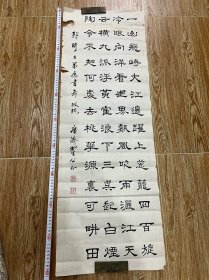 一山飛峙大江邊躍上葱蘢四百旋
冷眼向洋看世界熱風吹雨灑江天
雲橫九派浮黃鶴浪下三吳起白煙
陶令不知何處去桃花源裏可耕田